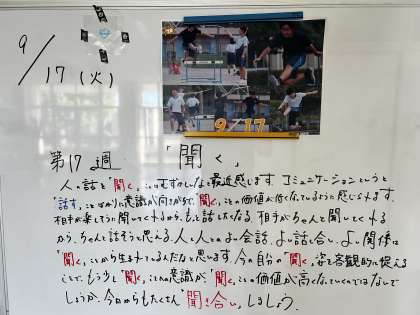 9/17(火)
9/17
第17週 「聞く」
人の話を「聞く」ことはむずかしいなと最近感じます。コミュニケーションというと
「話す」ことばかりに意識が向きがちで「聞く」ことの価値が低くなっているように感じられます。
相手が楽しそうに聞いてくれるから、もっと話したくなる。相手がちゃんと聞いてくれる
から、ちゃんと話そうと思える。人と人とのよい会話、よい話し合い、よい関係は
「聞く」ことから生まれているんだなと思います。今の自分の「聞く」姿を客観的に捉える
ことで、もう少し「聞く」ことへの意識が、「聞く」ことの価値が高くなっていくのではないで
しょうか。今日からもたくさん「聞き合い」しましょう。